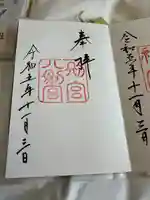 奉拝
別宮
八剣宮
令和五年十一月三日
令和五年十一月三日